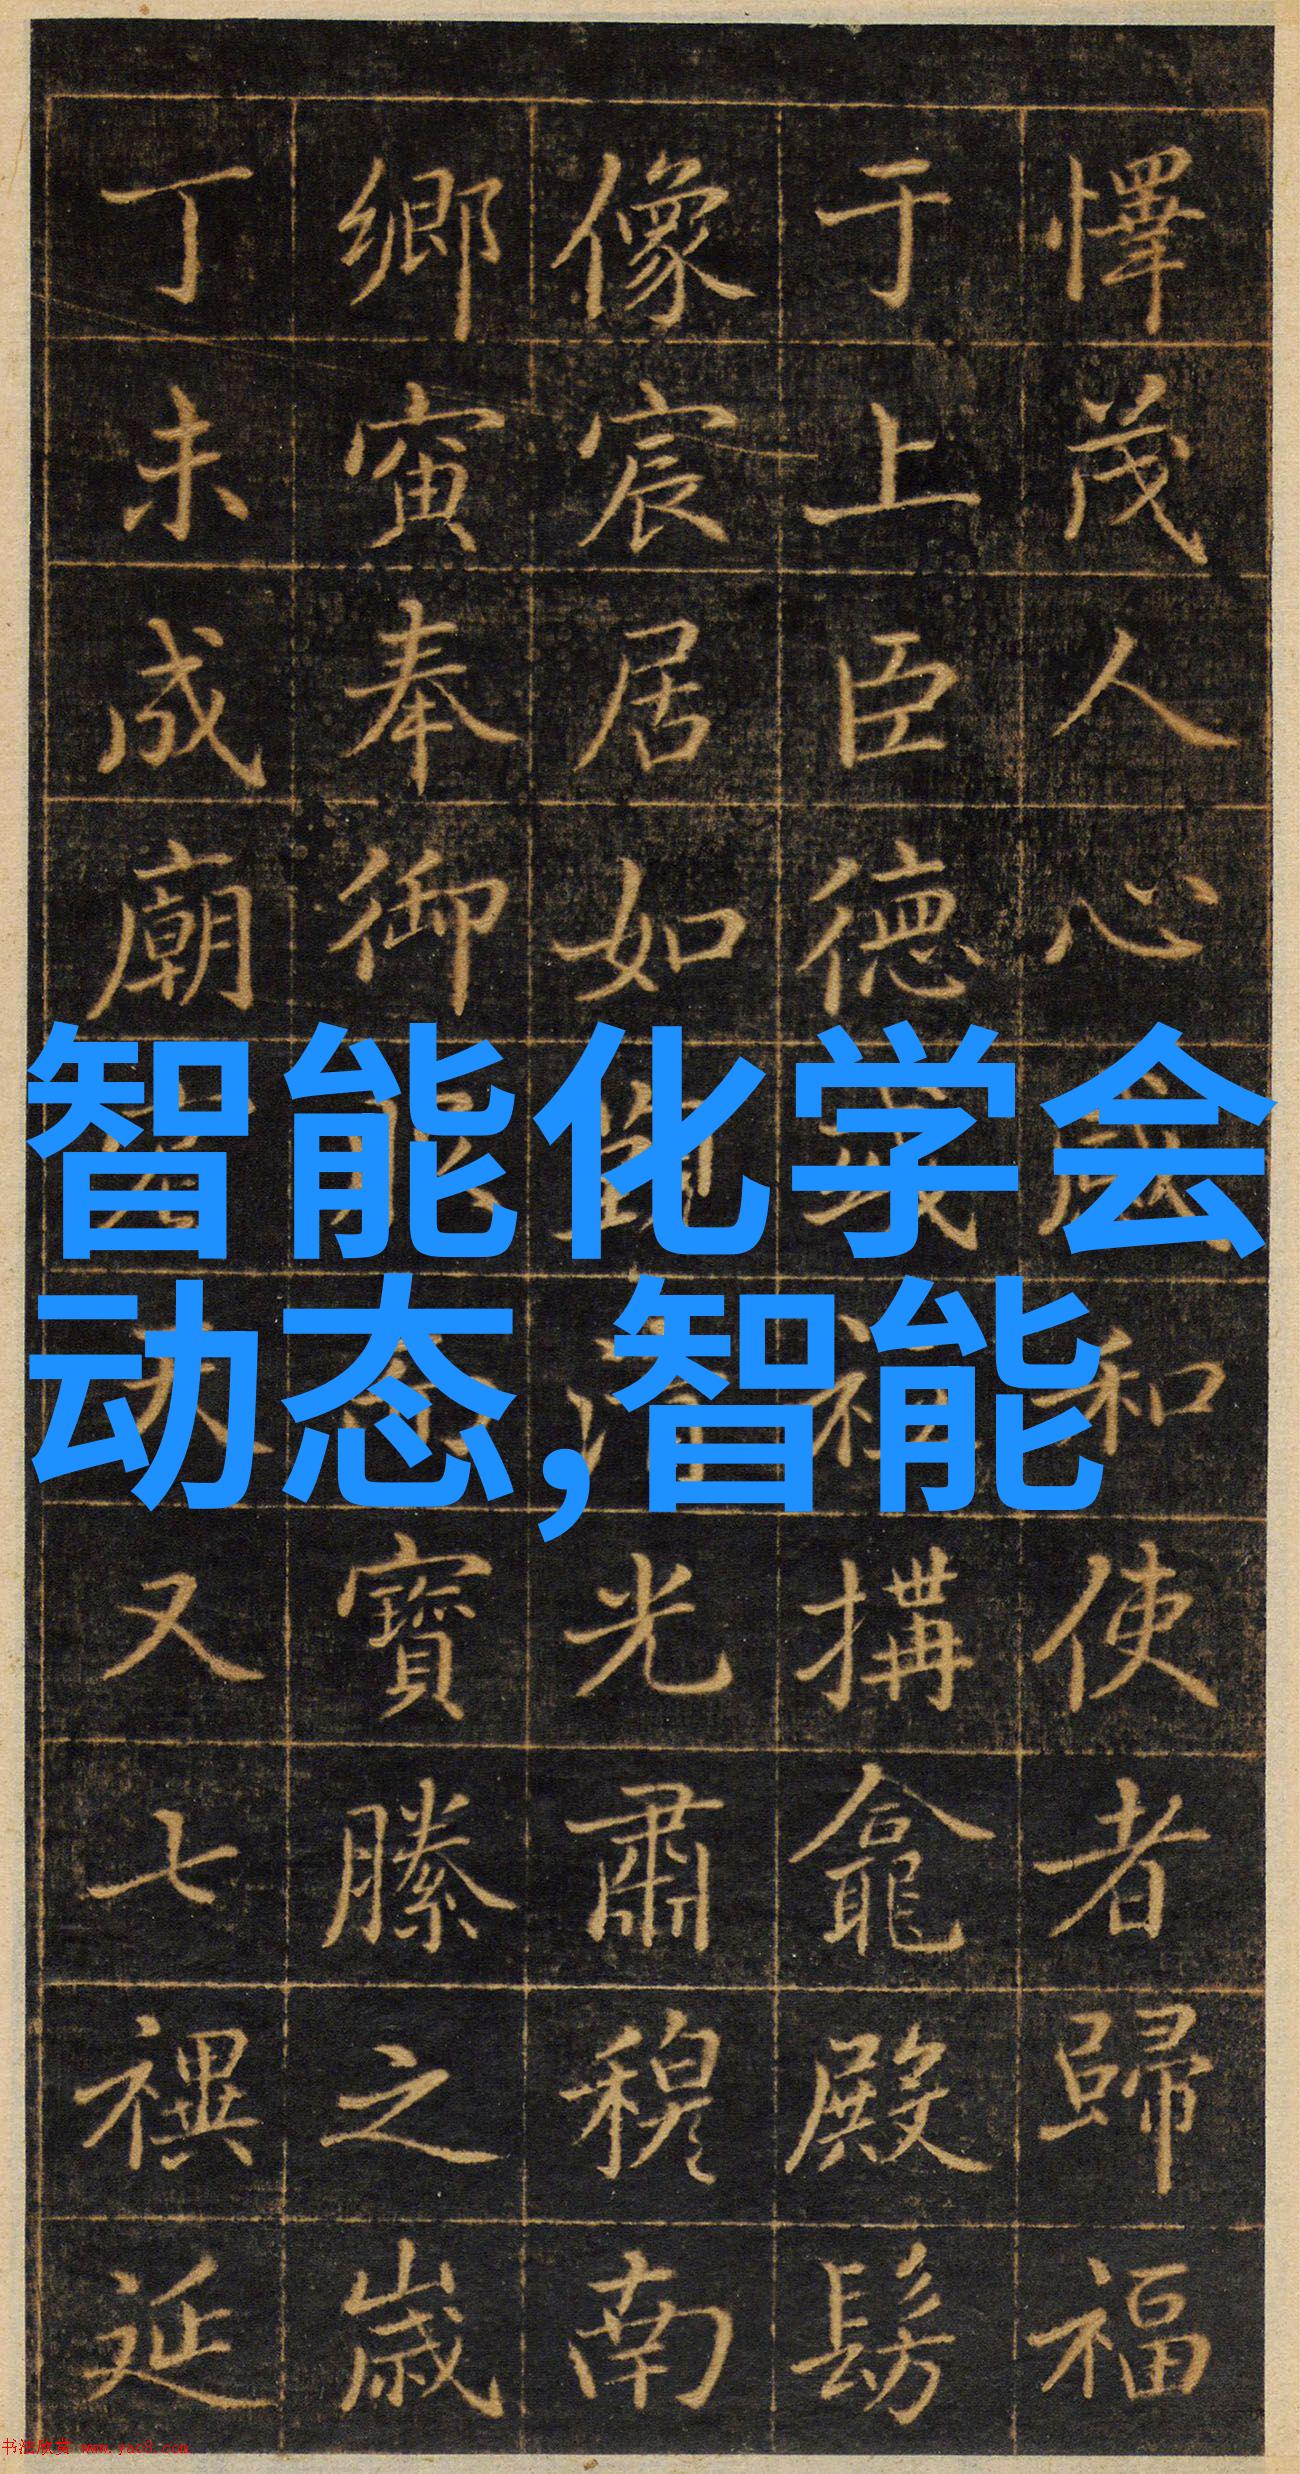 懌茂人心 和使者歸福
于上臣德 搆龕殿髣
像宸居如 光肅穆南
鄉寅奉御 寶縢之歲
丁未成廟 又七禩延
智能化学会
动态,智能
书法欣赏 www.yac8.com